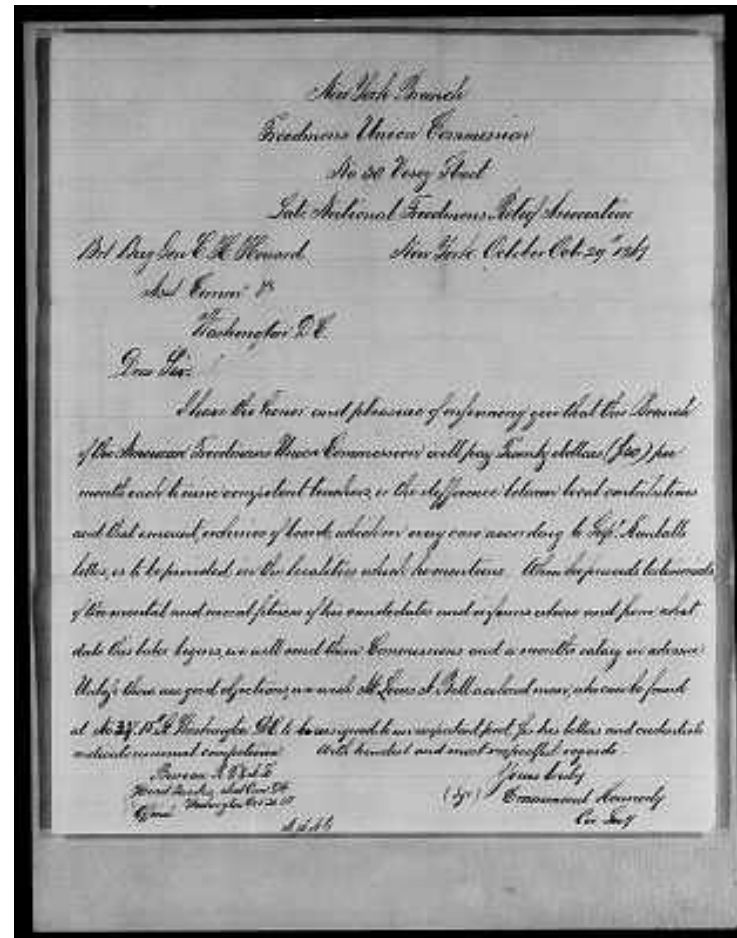 New York Branch
Freedmens Union Commission
No 30 Vesey Street
Late National Freedmens Relief Association
Bvt Brig Gen C. H. Howard New York October Oct 29" 1867
Asst Commr
Washington D.C.
Dear Sir:
I have the honor and pleasure of informing you that this Branch
of the American Freedmens Union Commission will pay Twenty dollars ($20) per
month each to nine competent teachers, or the difference between local contributions
and that amount, exclusive of board, which in every case according to Supt. Kimballs
letter, is to be provided in the localities which he mentions. When he presents testimonials
of the mental and moral fitness of his candidates and informs where and from what
date this labor begins, we will send them Commissions and a months salary in advance
Unless there are good objections, we wish Mr Louis A. Bell a colored man, who can be found
at No. D.C. to be assigned to an important post for his letters and credentials
indicate unusual competence With kindest and most respectful regards
Bureau Yours truly
Head Quarters Asst Com (Sgd)
Washington Kennedy
Official Cor Secy